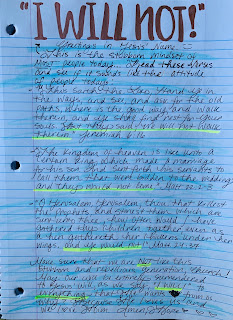 "I WILL NOT!"
Greetings in Jesus' Name
This is the stubborn mindset of
most people today. Read these verses
and see if it sounds like the attitude
of people today:
"Thus saith the LORD, Stand ye in
the ways, and see, and ask for the old
paths, where is the good way, and walk
therein, and ye shall find rest for your
souls. But they said, We will not walk
therein." Jeremiah 6:16
"The kingdom of heaven is like unto a
certain king, which made a marriage
for his son, And sent forth his servants to
call them that were bidden to the wedding:
and they would not come." Matt. 22:2-3
"O Jerusalem, Jerusalem, thou that killest
the prophets, and stonest them which are
sent unto thee, how often would I have
gathered thy children together, even as
a hen gathereth her chickens under her
wings, and ye would not!" Matt. 23:37
sure that we are NOT like this
stubborn and rebellious generation, church!
May our life be entirely surrendered
to Jesus' will, as we say, "I will